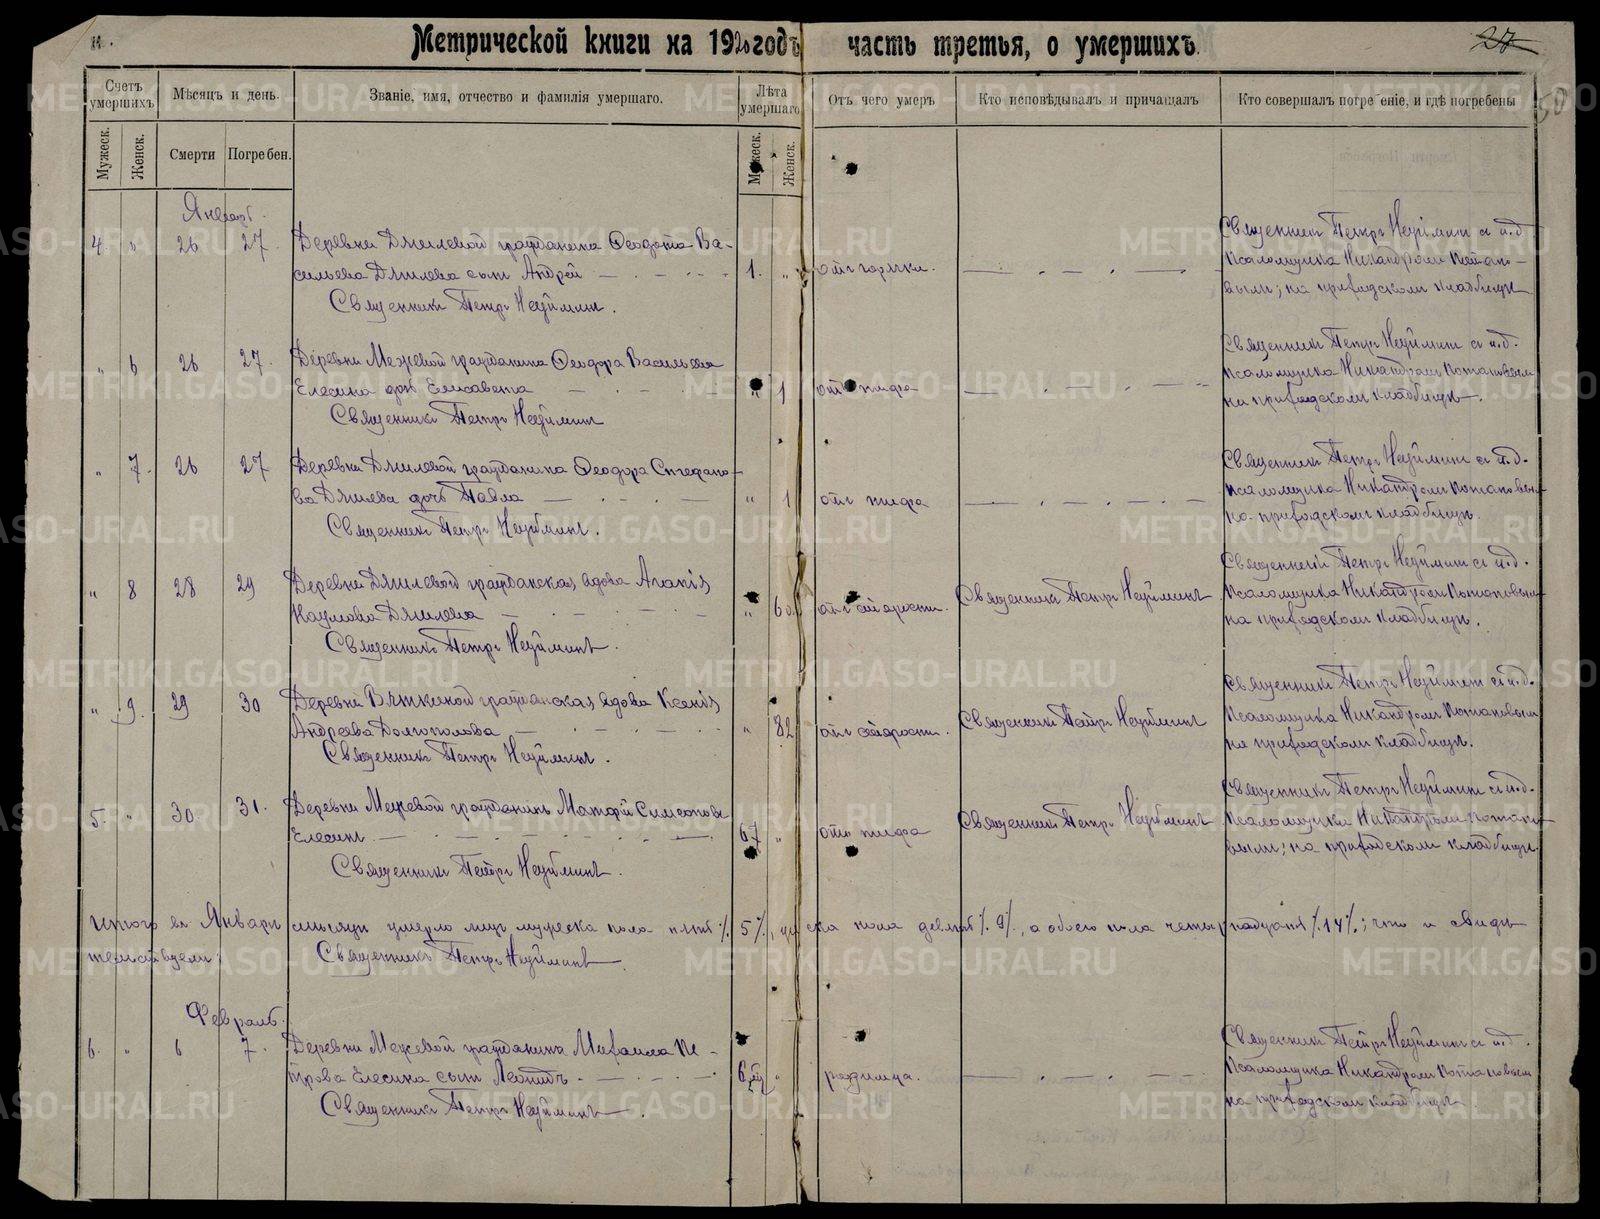 Метрической книги на 1920 годъ часть третья, о умершихъ.
27
50
Счетъ умершихъ
Мѣсяцъ и день.
Званіе, имя, отчество и фамилія умершаго.
Лѣта умершаго
Отъ чего умеръ
Кто исповѣдывалъ и причащалъ
Кто совершалъ погребеніе, и гдѣ погребены
Мужеск.
Женск.
Смерти
Погребен.
Мужеск.
Женск.
Январь.
4. " 26 27. Деревни гражданина Ѳеодота Ва-
сильева сынъ Андрей 1. " отъ горячки.
Священникъ Петръ Неуйминъ.
Священникъ Петръ Неуйминъ съ и.д.
псаломщика Никандромъ Потапо-
вымъ; на приходскомъ кладбищѣ
" 6 26 27. Деревни Межевой гражданина Ѳеодора Васильева
Елесина дочь Елисавета " 1 отъ тифа
Священникъ Петръ Неуйминъ
Священникъ Петръ Неуйминъ съ и.д.
псаломщика Никандромъ Потаповымъ
на приходскомъ кладбищѣ.
" 7. 26 27 Деревни гражданина Ѳеодора Стефано-
ва дочь Павла " 1 отъ тифа
Священникъ Петръ Неуйминъ.
Священникъ Петръ Неуйминъ съ и.д.
псаломщика Никандромъ Потаповым
на приходскомъ кладбищѣ.
" 8 28 29 Деревни гражданская вдова Агапія
Наумова " 60 отъ старости. Священникъ Петръ Неуйминъ
Священникъ Петръ Неуйминъ.
Священникъ Петръ Неуйминъ съ и.д.
псаломщика Никандромъ Потаповым
на приходскомъ кладбищѣ.
" 9. 29 30 Деревни Вяткиной гражданская вдова Ксенія
Андреева Долгополова " 82 отъ старости. Священникъ Петръ Неуйминъ
Священникъ Петръ Неуйминъ.
Священникъ Петръ Неуйминъ съ и.д.
псаломщика Никандромъ Потаповым
на приходскомъ кладбищѣ.
5. " 30. 31. Деревни Межевой гражданинъ Матфей Симеоновъ
Елесинъ 67 " отъ тифа Священникъ Петръ Неуйминъ
Священникъ Петръ Неуйминъ.
Священникъ Петръ Неуйминъ съ и.д.
псаломщика Никандромъ Потапо-
вымъ; на приходскомъ кладбищѣ.
Итого въ Январѣ мѣсяцѣ умерло лицъ мужеска пола пять /5/, женска пола девять /9/, а обоего пола четырнадцать /14/; что и свидѣ-
тельствуемъ:
Священникъ Петръ Неуйминъ.
Февраль.
6. " 6 7. Деревни Межевой гражданина Михаила Пе-
трова Елесина сынъ Леонидъ. 6 " родимца.
Священникъ Петръ Неуйминъ.
Священникъ Петръ Неуйминъ съ и.д.
псаломщика Никандромъ Потаповым
на приходскомъ кладбищѣ
METRIKI.GASO-URAL.RU